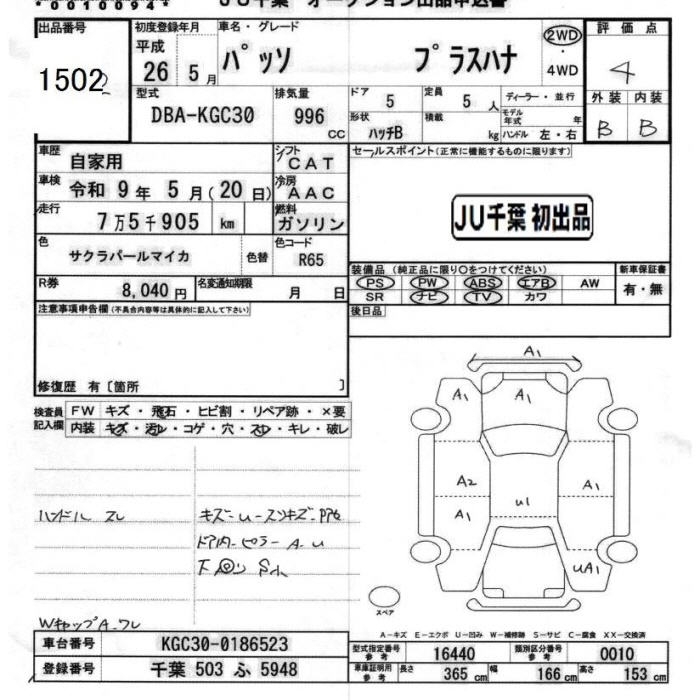 *00100944*
JU千葉 オークション出品申込書
出品番号
1502
初度登録年月
平成
26 5月
車名・グレード
パッソ プラスハナ
2WD
・
4WD
評価点
4
型式
DBA-KGC30
排気量
996 cc
ドア
5
定員
5 人
形状
ハッチB
積載
kg
ディーラー・並行
モデル年式 年
ハンドル 左・右
外装 内装
B B
車歴
自家用
シフト
CAT
車検
令和 9年 5月(20日)
冷房
AAC
走行
7万5千905 km
燃料
ガソリン
色
サクラパールマイカ
色替
色コード
R65
R券
8,040円
名変通知期限
月 日
セールスポイント(正常に機能するものに限ります)
JU千葉 初出品
装備品 (純正品に限り○をつけてください)
PS PW ABS エアB AW
SR ナビ TV カワ
新車保証書
有・無
後日品
注意事項申告欄(不具合内容等は具体的に記入して下さい)
修復歴 有〔箇所 〕
検査員記入欄
FW キズ・飛石・ヒビ割・リペア跡・×要
内装 キズ・汚レ・コゲ・穴・スレ・キレ・破レ
ハンドル スレ
キズ-U-スリキズ-
ドア内-ピラー A-U
Wキャップ A-ワレ
A1
A1 A1 A1
A2 A1
A1 U1
UA1
スペア
A-キズ E-エクボ U-凹み W-補修跡 S-サビ C-腐食 XX-交換済
車台番号 KGC30-0186523
登録番号 千葉 503 ふ 5948
型式指定番号 参考 16440 類別区分番号 参考 0010
車庫証明用 参考 長さ 365 cm 幅 166 cm 高さ 153 cm